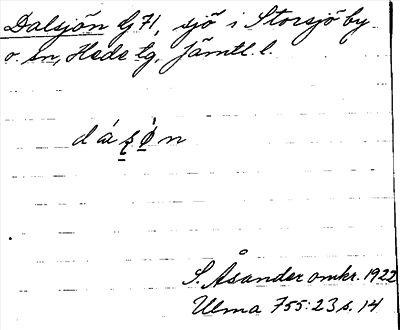 Dalsjön G 71, sjö i Storsjö by
o. sn, Hede tg, Jämtl. l.
dásø̀n
S. Åsander omkr. 1922
Ulma 755:23 s. 14